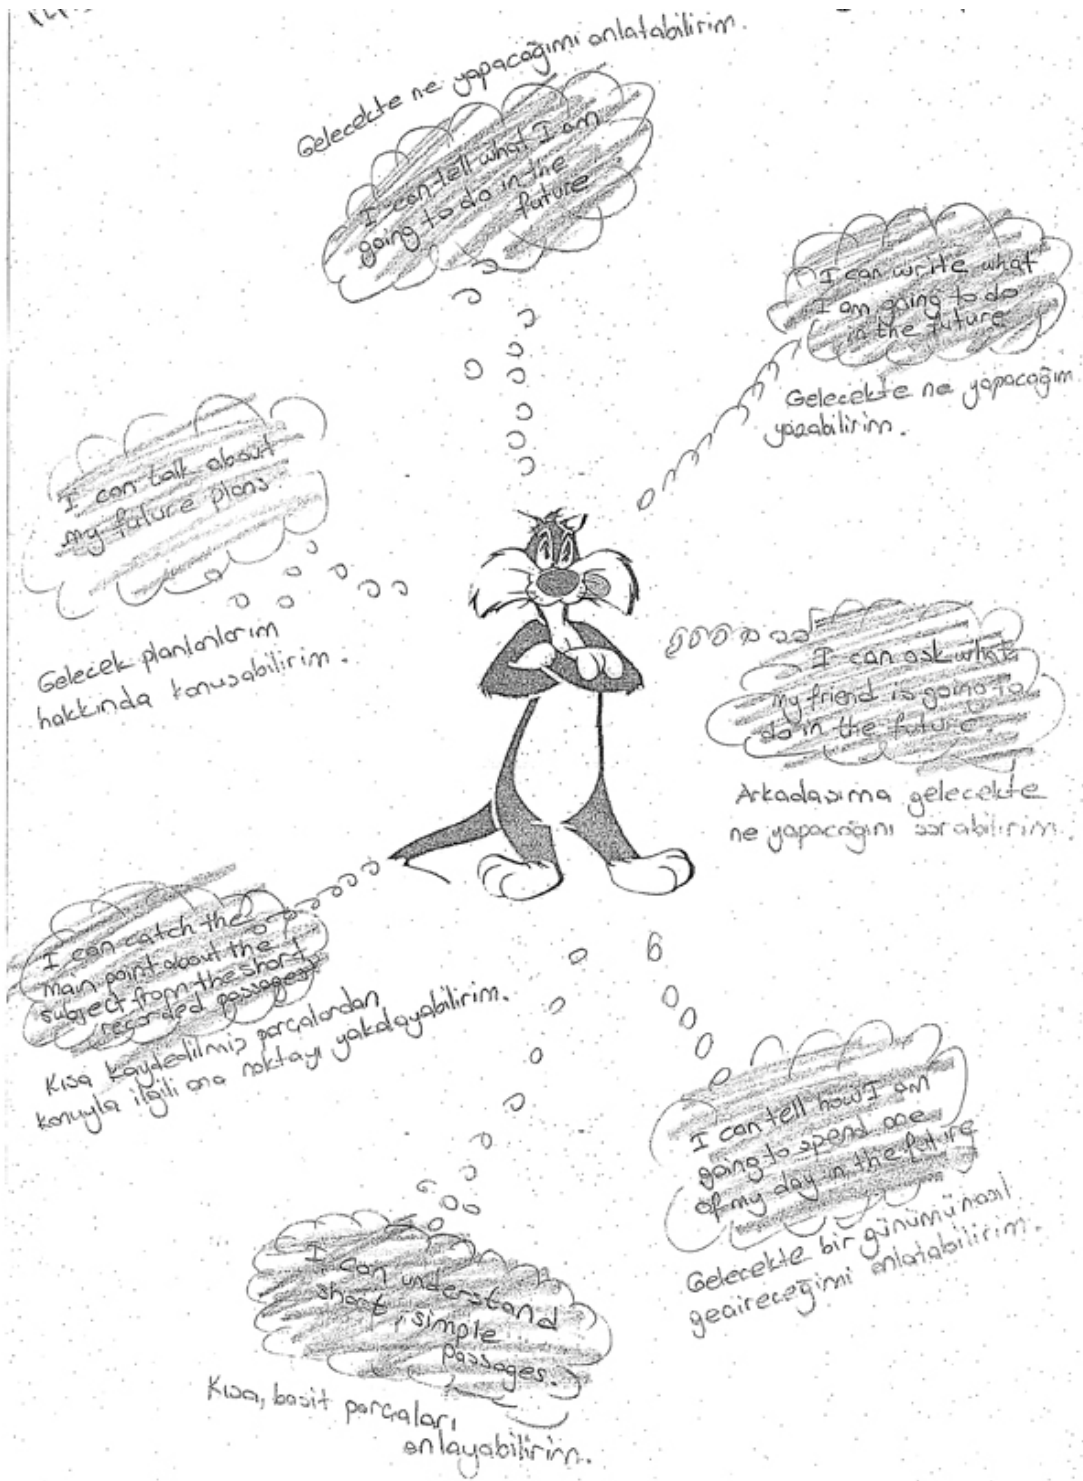 Gelecekte ne yapacağımı anlatabilirim.
I can tell what I am
going to do in the
future
I can write what
I am going to do
in the future
Gelecekte ne yapacağım
yazabilirim.
I can talk about
my future plans
Gelecek planlarım
hakkında konuşabilirim.
I can ask what
my friend is going to
do in the future.
Arkadaşıma gelecekte
ne yapacağını sorabilirim.
I can catch the
main point about the
subject from the short
recorded passages
Kısa kaydedilmiş parçalardan
konuyla ilgili ana noktayı yakalayabilirim.
I can tell how I am
going to spend one
of my day in the future
Gelecekte bir günümü nasıl
geçireceğimi anlatabilirim.
I can understand
short, simple
passages.
Kısa, basit parçaları
anlayabilirim.